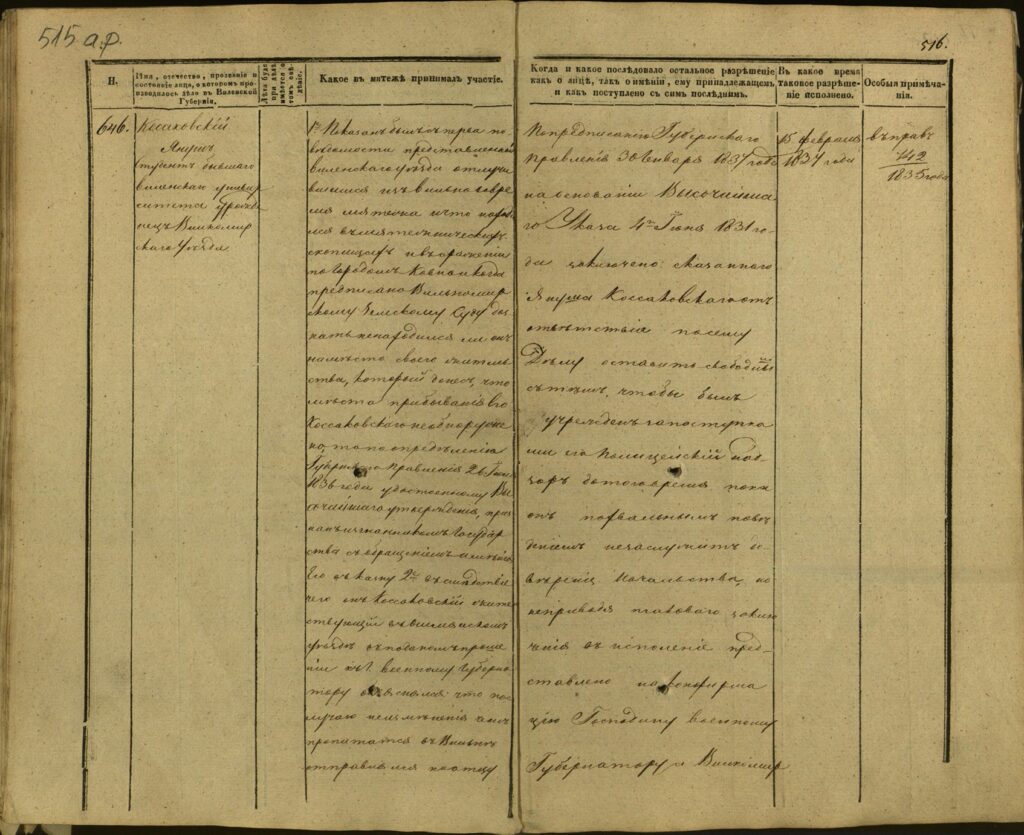 515 а.р.
516.
Н.
Имя, отчество, прозваніе и
состояніе лица, о которомъ про-
изводилось дѣло въ Виленской
Губерніи.
Лѣта буде
при дѣлѣ
имѣется о
томъ свѣ-
дѣніе.
Какое въ мятежѣ принималъ участіе.
Когда и какое послѣдовало остальное разрѣшеніе
какъ о лицѣ, такъ о имѣніи, ему принадлежащемъ
и какъ поступлено съ симъ послѣднимъ.
Въ какое время
таковое разрѣше-
ніе исполнено.
Особыя примѣча-
нія.
646.
Коссаковскій
Янушъ
Студентъ бывшаго
виленскаго универ
ситета урожде
нецъ Вилкомир
скаго Уѣзда
1е Показанъ былъ съ перва по
вѣдомости представленной
виленскаго уѣзда отлучи
вшимся изъ вильно во вре
мя мятежа и что нахо
лся въ мятежническихъ
скопищахъ и въ сраженіи
по городомъ Ковно и когда
предписано Вилькомир
скому Земскому Суду доз
нать ненаходился ли онъ
на мѣстѣ своего житель
ства, который донесъ, что
мѣсто прибыванія его
Коссаковскаго необнаруже
но, то по опредѣленію
Губернскаго Правленія 26
1836 года удостоенному Вы
сочайшаго утвержденія, приз
нанъ изгнанникомъ Государ
ства съ обращеніемъ имѣнія
Его въ казну 2е въ слѣдствіе
чего онъ Коссаковскій жите
ствующій въ виленскомъ
уѣздѣ въ поданомъ проше
ніи Г. военному Губерна
тору объяснялъ что по
случаю неимѣнія чемъ
пропитатся въ Вильнѣ
отправился къ отцу
По предписанію Губернскаго
Правленія 30 Января 1837 года
на основаніи Высочайша
го Указа 4го Іюня 1831 го-
да заключено: сказаннаго
Януша Коссаковскаго отъ
отвѣтствія по сему
Дѣлу оставить свободнымъ
съ тѣмъ, чтобы былъ
учрежденъ за поступка
ми его Полицейскій над-
зоръ до того время пока
онъ похвальнымъ пове
деніемъ незаслужитъ до-
вѣрія Начальства, но
неприводя таковаго заклю
ченія въ исполненіе пред-
ставлено на конфирма
цію Господину военному
Губернатору и Вилкомир
15 февраля
1837 года
въ прав
142
1835 года